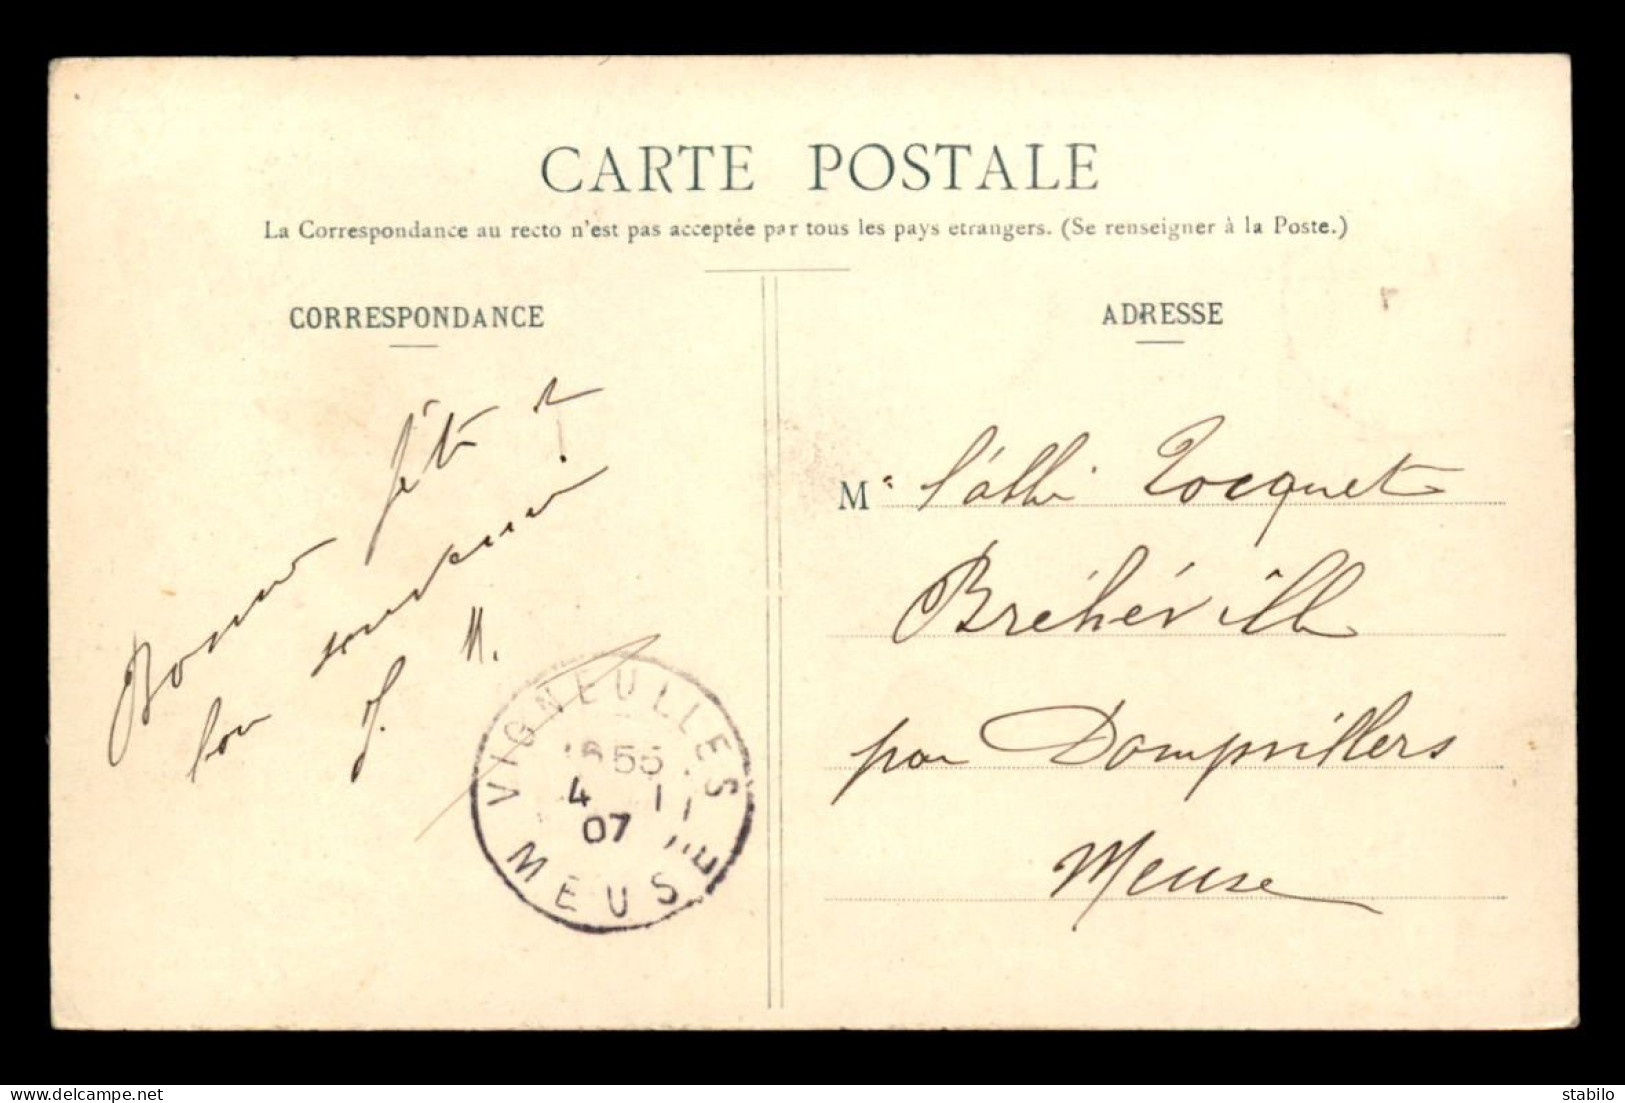 CARTE POSTALE
La Correspondance au recto n'est pas acceptée par tous les pays etrangers. (Se renseigner à la Poste.)
CORRESPONDANCE
Bonne fête &
bon souvenir
J. M.
VIGNEULLES
4 1
07
MEUSE
ADRESSE
Mr l'abbé Tocquet
Bréhéville
par Dampvillers
Meuse
stabilo